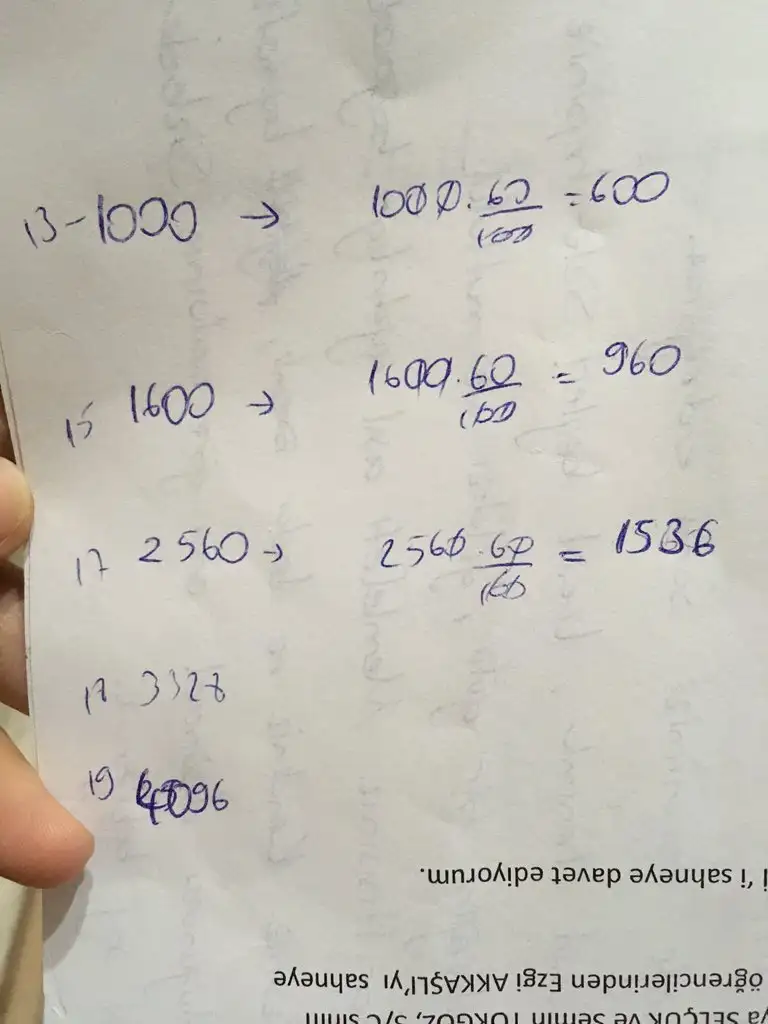 13-1000 → 1000 · 60/100 = 600
15 1600 → 1600 · 60/100 = 960
17 2560 → 2560 · 60/100 = 1536
18 3328
19 4096
İ 'i sahneye davet ediyorum.
öğrencilerinden Ezgi AKKAŞLI'yı sahneye
ya SELÇUK ve Semin TÜRGÖZ, 5/C sınıfı